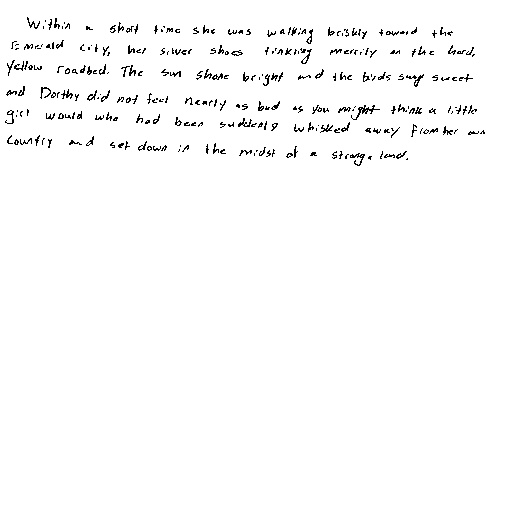 Within a short time she was walking briskly toward the
Emerald City, her silver shoes tinkling merrily on the hard,
yellow roadbed. The sun shone bright and the birds sang sweet
and Dorthy did not feel nearly as bad as you might think a little
girl would who had been suddenly whisked away from her own
country and set down in the midst of a strange land.